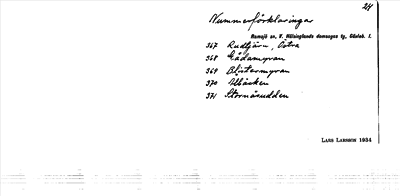 24
Nummerförklaringar
Ramsjö sn, V. Hälsinglands domsagas tg, Gävleb. l.
367 Rudtjärn, Östra
368 Gådamyran
369 Blistermyran
370 Albäcken
371 Stornäsudden
LARS LARSSON 1934